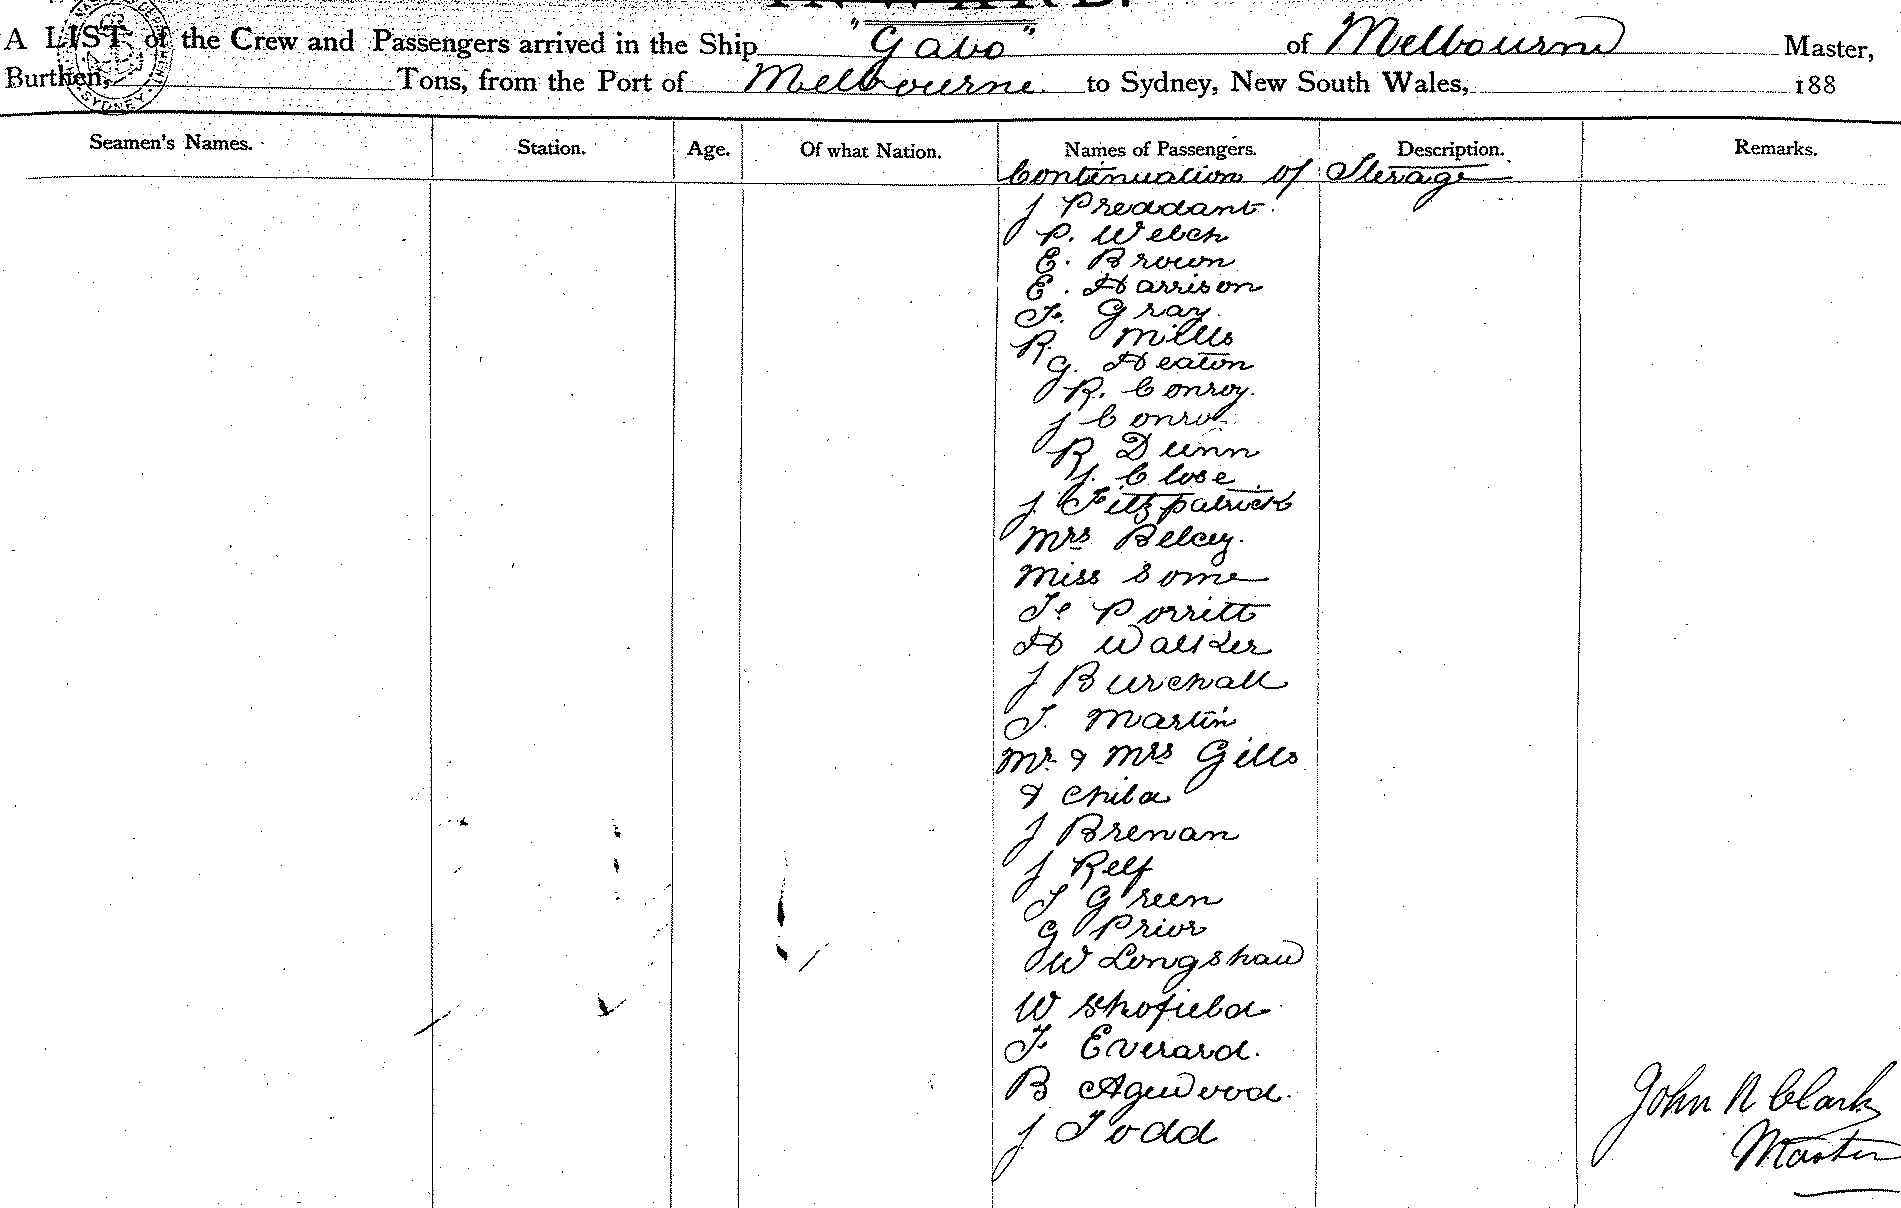 A LIST of the Crew and Passengers arrived in the Ship "Gabo" of Melbourne Master,
Burthen, Tons, from the Port of Melbourne to Sydney, New South Wales, 188
Seamen's Names. Station. Age. Of what Nation. Names of Passengers. Description. Remarks.
Continuation of Sterage
J Preddant.
P. Welch
E. Brown
E. Harrison
F. Gray
R. Mills
G. Heaton
R. Conroy.
J Conroy
R Dunn
J. Close
J. Fitzpatrick
Mrs Belcey.
Miss Some
F Porritt
H Walker
J Burchall
T. Martin
Mr & Mrs Gills
& child
J Brenan
J Relf
T Green
G Prior
W Longshaw
W Shofield
F Everard.
B Agewood.
J Todd
John N Clark
Master